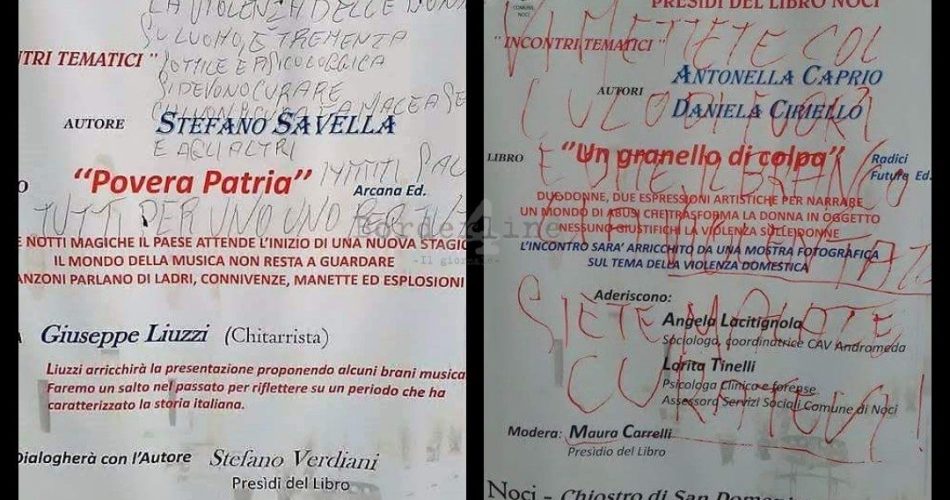 LA VIOLENZA DELLE DONNE
SULL'UOMO, È TREMENTA
SOTTILE E PSICOLOGGICA
SI DEVONO CURARE
NTRI TEMATICI"
AUTORE STEFANO SAVELLA
E AGLI ALTRI
"Povera Patria" Arcana Ed.
TUTTI PER UNO UNO PER TUTTI
E NOTTI MAGICHE IL PAESE ATTENDE L'INIZIO DI UNA NUOVA STAGIO
IL MONDO DELLA MUSICA NON RESTA A GUARDARE
ANZONI PARLANO DI LADRI, CONNIVENZE, MANETTE ED ESPLOSIONI
Giuseppe Liuzzi (Chitarrista)
Liuzzi arricchirà la presentazione proponendo alcuni brani musica
Faremo un salto nel passato per riflettere su un periodo che ha
caratterizzato la storia italiana.
Dialogherà con l'Autore Stefano Verdiani
Presìdi del Libro
COMUNE
NOCI
PRESÌDI DEL LIBRO NOCI
"INCONTRI TEMATICI"
VI METTETE COL
CULO DI FUORI
AUTORI ANTONELLA CAPRIO
DANIELA CIRIELLO
LIBRO "Un granello di colpa" Radici Future Ed.
DUE DONNE, DUE ESPRESSIONI ARTISTICHE PER NARRARE
UN MONDO DI ABUSI CHE TRASFORMA LA DONNA IN OGGETTO
NESSUNO GIUSTIFICHI LA VIOLENZA SULLE DONNE
L'INCONTRO SARA' ARRICCHITO DA UNA MOSTRA FOTOGRAFICA
SUL TEMA DELLA VIOLENZA DOMESTICA
SIETE MALATE,
CURATEVI!
Aderiscono:
Angela Lacitignola
Sociologa, coordinatrice CAV Andromeda
Lorita Tinelli
Psicologa Clinica e forense
Assessora Servizi Sociali Comune di Noci
Modera: Maura Carrelli
Presìdio del Libro
Noci - Chiostro di San Dome
borderline
-Il giornale-